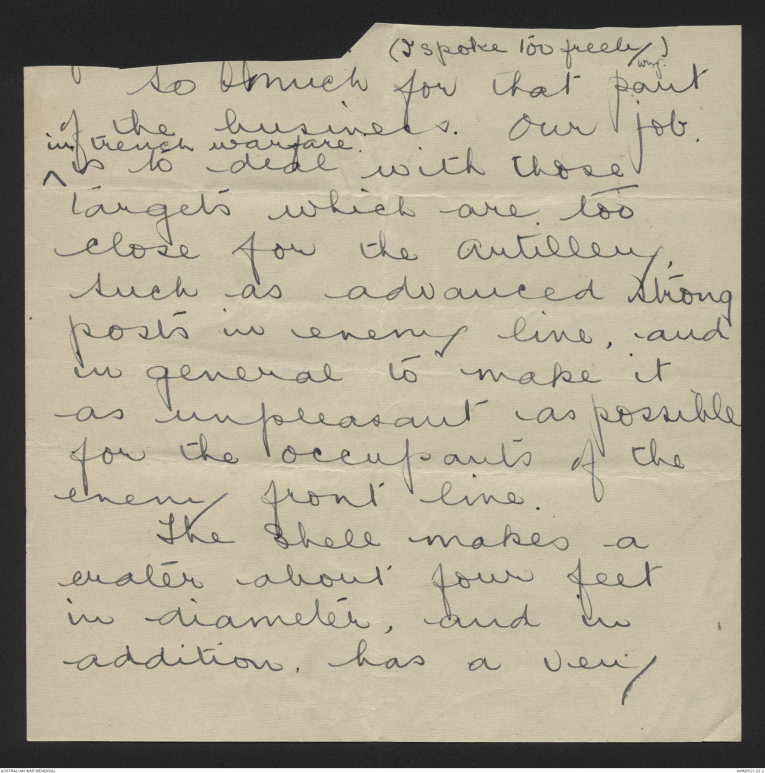 (I spoke too freely)
why.
So much for that part
of the business. Our job
in trench warfare
is to deal with those
targets which are too
close for the artillery,
such as advanced strong
posts in enemy line, and
in general to make it
as unpleasant as possible
for the occupants of the
enemy front line.
The shell makes a
crater about four feet
in diameter, and in
addition, has a very
AUSTRALIAN WAR MEMORIAL